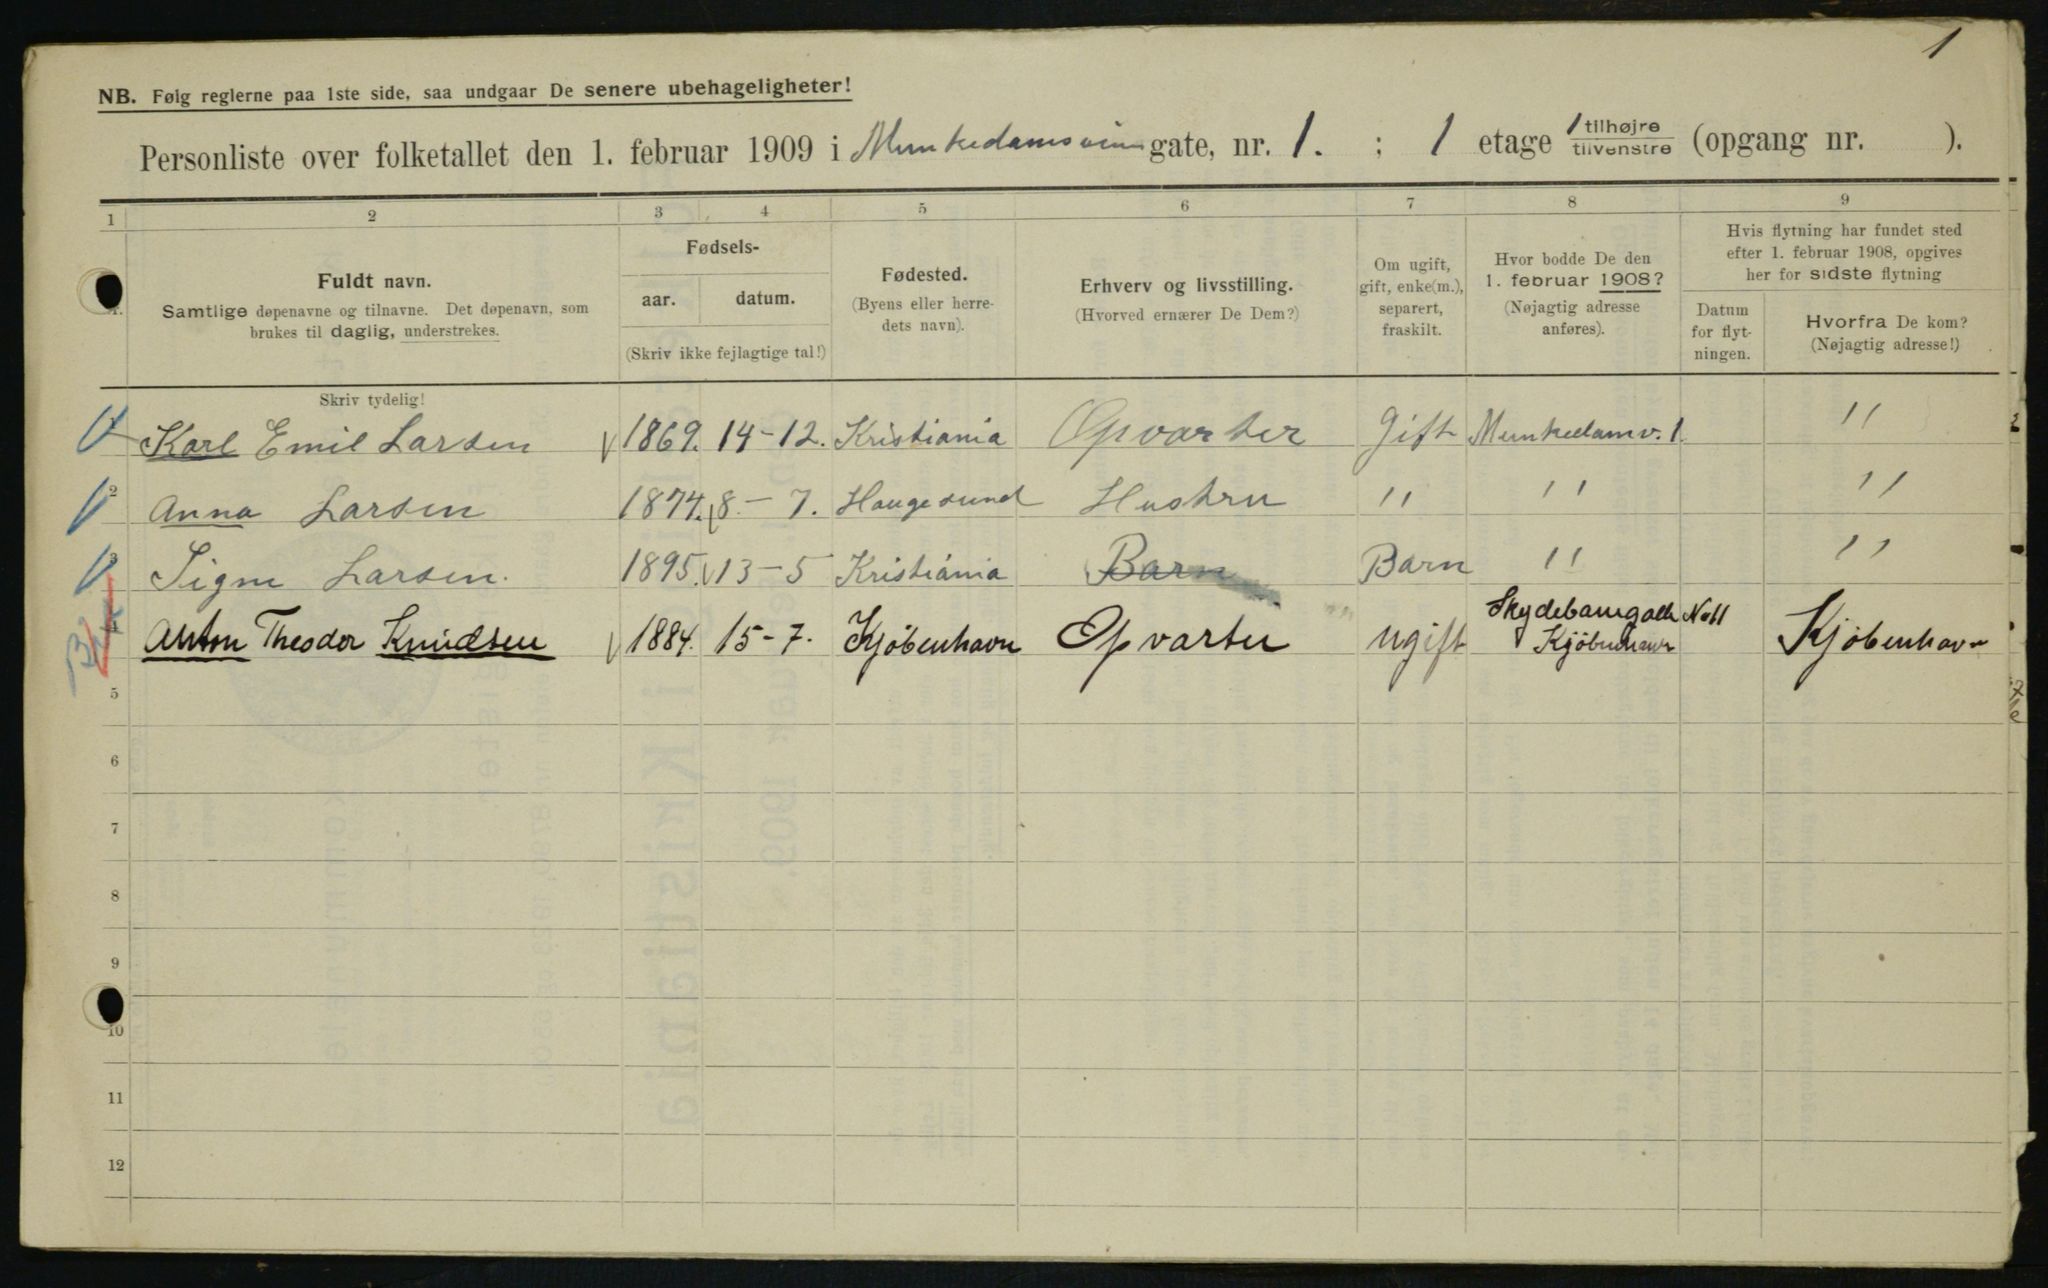 1
NB. Følg reglerne paa 1ste side, saa undgaar De senere ubehageligheter!
Personliste over folketallet den 1. februar 1909 i Munkedamsveien gate, nr. 1. ; 1 etage 1 tilhøjre / tilvenstre (opgang nr. ).
1 2 3 4 5 6 7 8 9
Fuldt navn.
Samtlige døpenavne og tilnavne. Det døpenavn, som
brukes til daglig, understrekes.
Skriv tydelig!
Fødsels-
aar. datum.
(Skriv ikke fejlagtige tal!)
Fødested.
(Byens eller herre-
dets navn).
Erhverv og livsstilling.
(Hvorved ernærer De Dem?)
Om ugift,
gift, enke(m.),
separert,
fraskilt.
Hvor bodde De den
1. februar 1908?
(Nøjagtig adresse
anføres).
Hvis flytning har fundet sted
efter 1. februar 1908, opgives
her for sidste flytning
Datum
for flyt-
ningen.
Hvorfra De kom?
(Nøjagtig adresse!)
Karl Emil Larsen 1869. 14-12. Kristiania Opvarter Gift Munkedamv. 1. "
2 Anna Larsen 1874. 8.-7. Haugesund Hustru " " "
3 Signe Larsen. 1895. 13-5 Kristiania Barn Barn " "
4 Anton Theodor Knudsen 1884. 15-7. Kjøbenhavn Opvarter ugift Skydebanegade No 11 Kjøbenhavn Kjøbenhavn
5
6
7
8
9
10
11
12